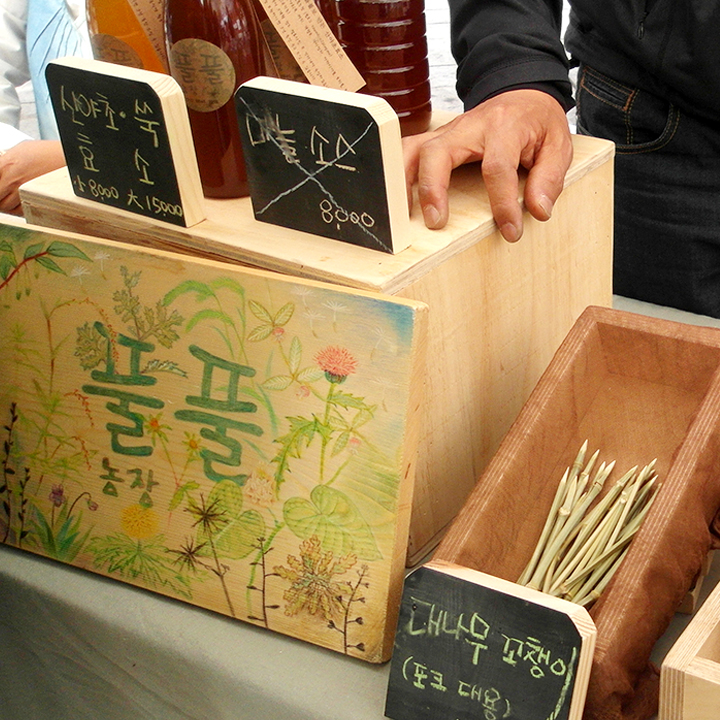 산야초·쑥
효소
小8000 大15000
마늘 소스
8,000
풀풀
풀풀
농장
대나무 꼬챙이
(포크 대용)